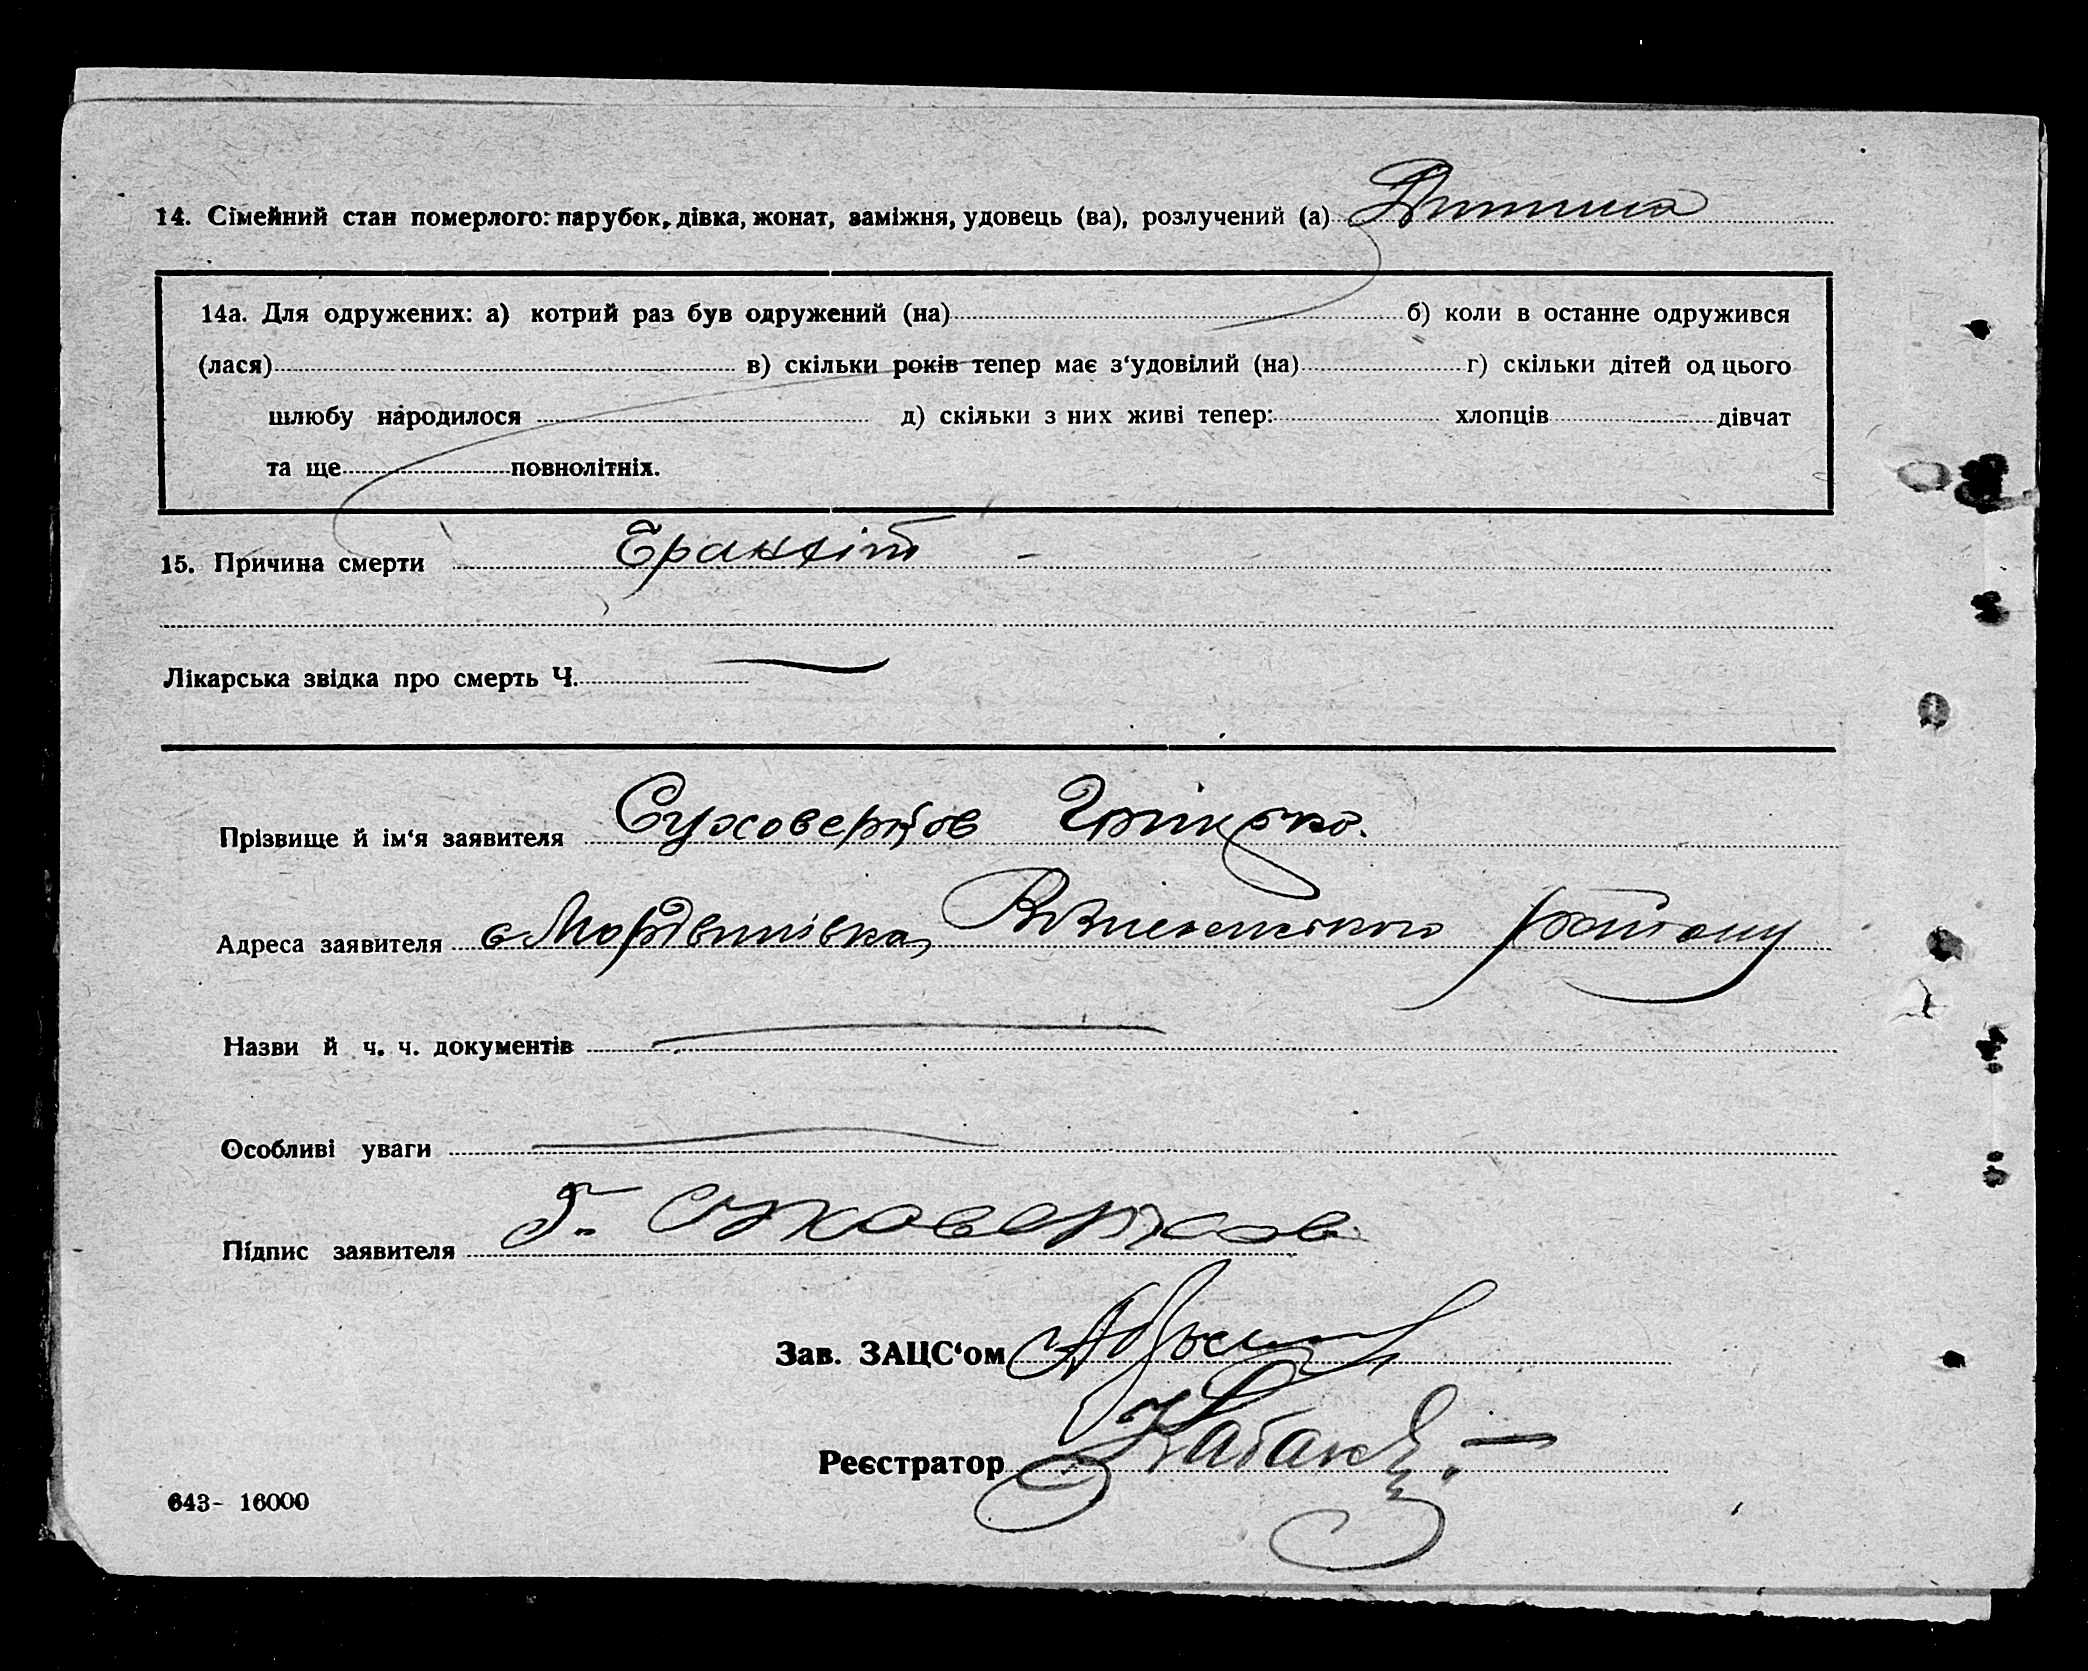 14. Сімейний стан померлого: парубок, дівка, жонат, заміжня, удовець (ва), розлучений (а) Дитина
14а. Для одружених: а) котрий раз був одружений (на) б) коли в останне одружився
(лася) в) скільки років тепер має з‘удовілий (на) г) скільки дітей од цього
шлюбу народилося д) скільки з них живі тепер: хлопців дівчат
та ще повнолітніх.
15. Причина смерти Бранхіт
Лікарська звідка про смерть Ч.
Прізвище й ім‘я заявителя Суховерхов Грицько.
Адреса заявителя с Мордвинівка, району
Назви й ч. ч. документів
Особливі уваги
Підпис заявителя Г. Суховерхов
Зав. ЗАЦС‘ом
Реєстратор
643- 16000